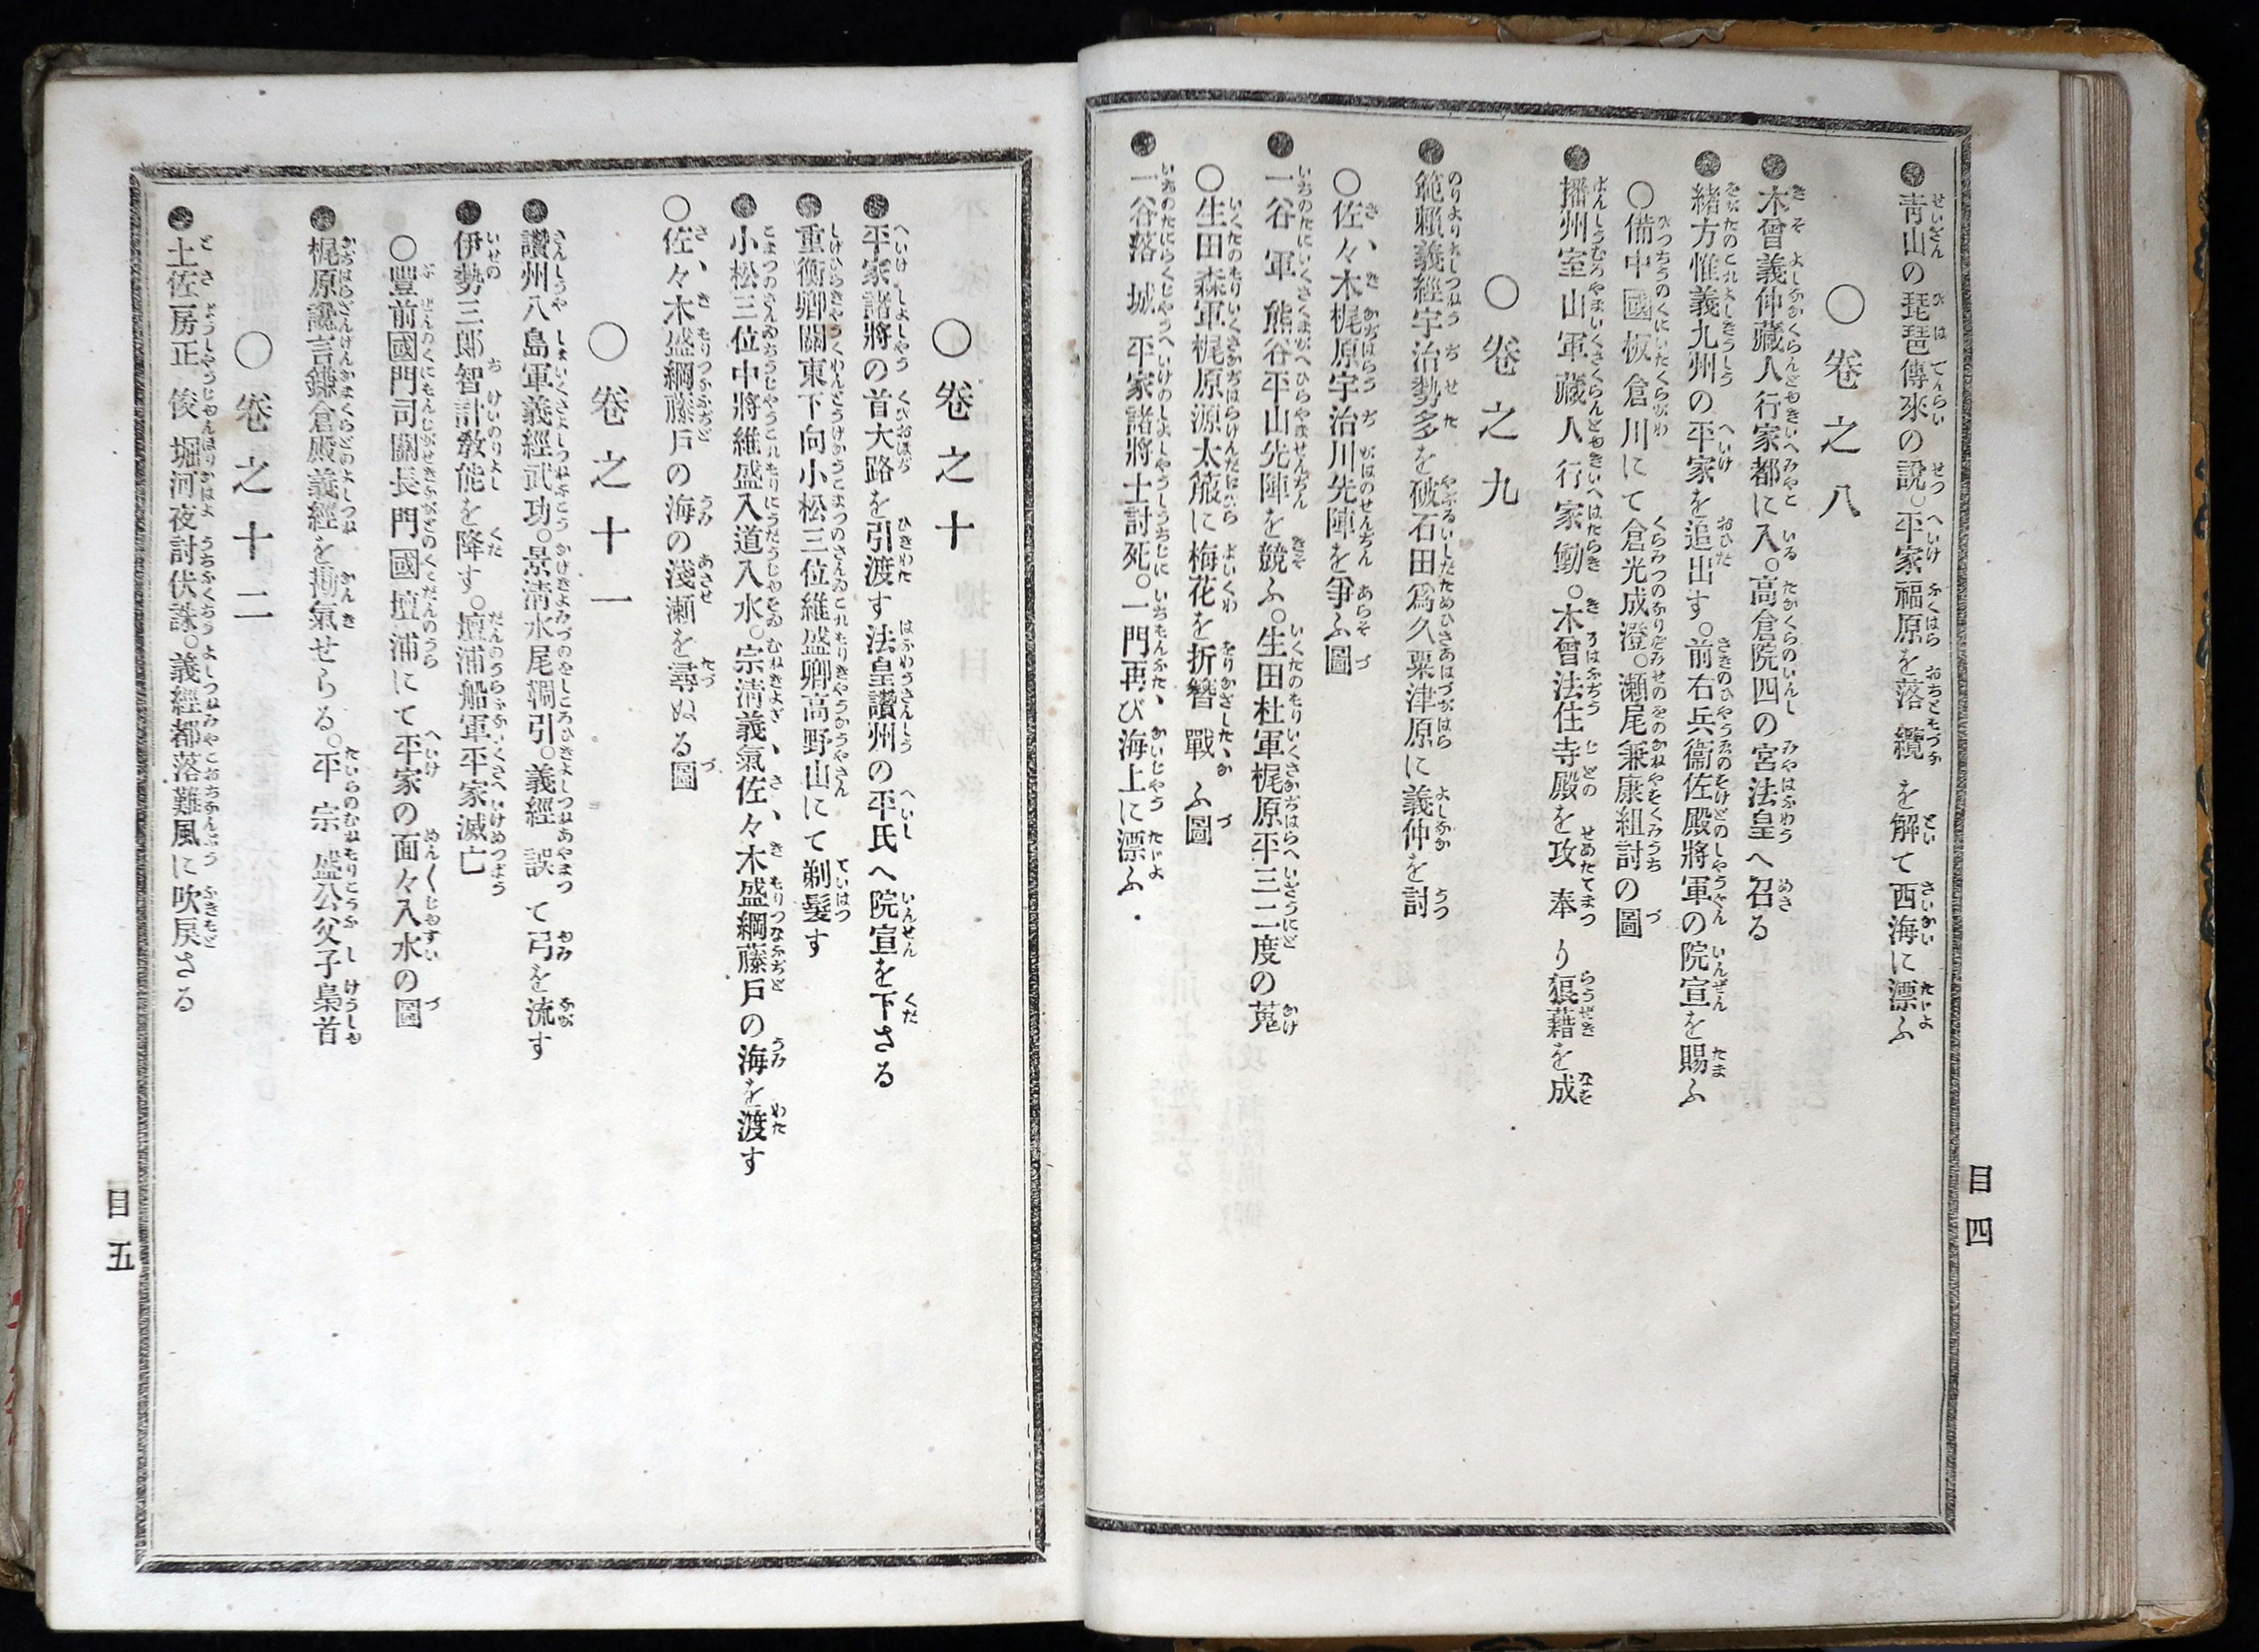 ●靑山の琵琶傳來の說。平家福原を落纜を解て西海に漂ふ
○卷之八
●木曾義仲藏人行家都に入。高倉院四の宮法皇へ召る
●緖方惟義九州の平家を追出す。前右兵衞佐殿將軍の院宣を賜ふ
○備中國板倉川にて倉光成澄。瀨尾兼康組討の圖
●播州室山軍藏人行家働。木曾法住寺殿を攻奉り狼藉を成
○卷之九
●範賴義經宇治勢多を破石田爲久粟津原に義仲を討
○佐々木梶原宇治川先陣を爭ふ圖
●一谷軍熊谷平山先陣を競ふ。生田杜軍梶原平三二度の蒐
○生田森軍梶原源太箙に梅花を折簪戰ふ圖
●一谷落城平家諸將士討死。一門再び海上に漂ふ
目四
○卷之十
●平家諸將の首大路を引渡す法皇讃州の平氏へ院宣を下さる
●重衡卿關東下向小松三位維盛卿高野山にて剃髮す
●小松三位中將維盛入道入水。宗淸義氣佐々木盛綱藤戶の海を渡す
○佐々木盛綱藤戶の海の淺瀨を尋ぬる圖
○卷之十一
●讃州八島軍義經武功。景淸水尾錣引。義經誤て弓を流す
●伊勢三郞智計敎能を降す。壇浦船軍平家滅亡
○豐前國門司關長門國壇浦にて平家の面々入水の圖
●梶原讒言鎌倉殿義經を勘氣せらる。平宗盛公父子梟首
○卷之十二
●土佐房正俊堀河夜討伏誅。義經都落難風に吹戾さる
目五